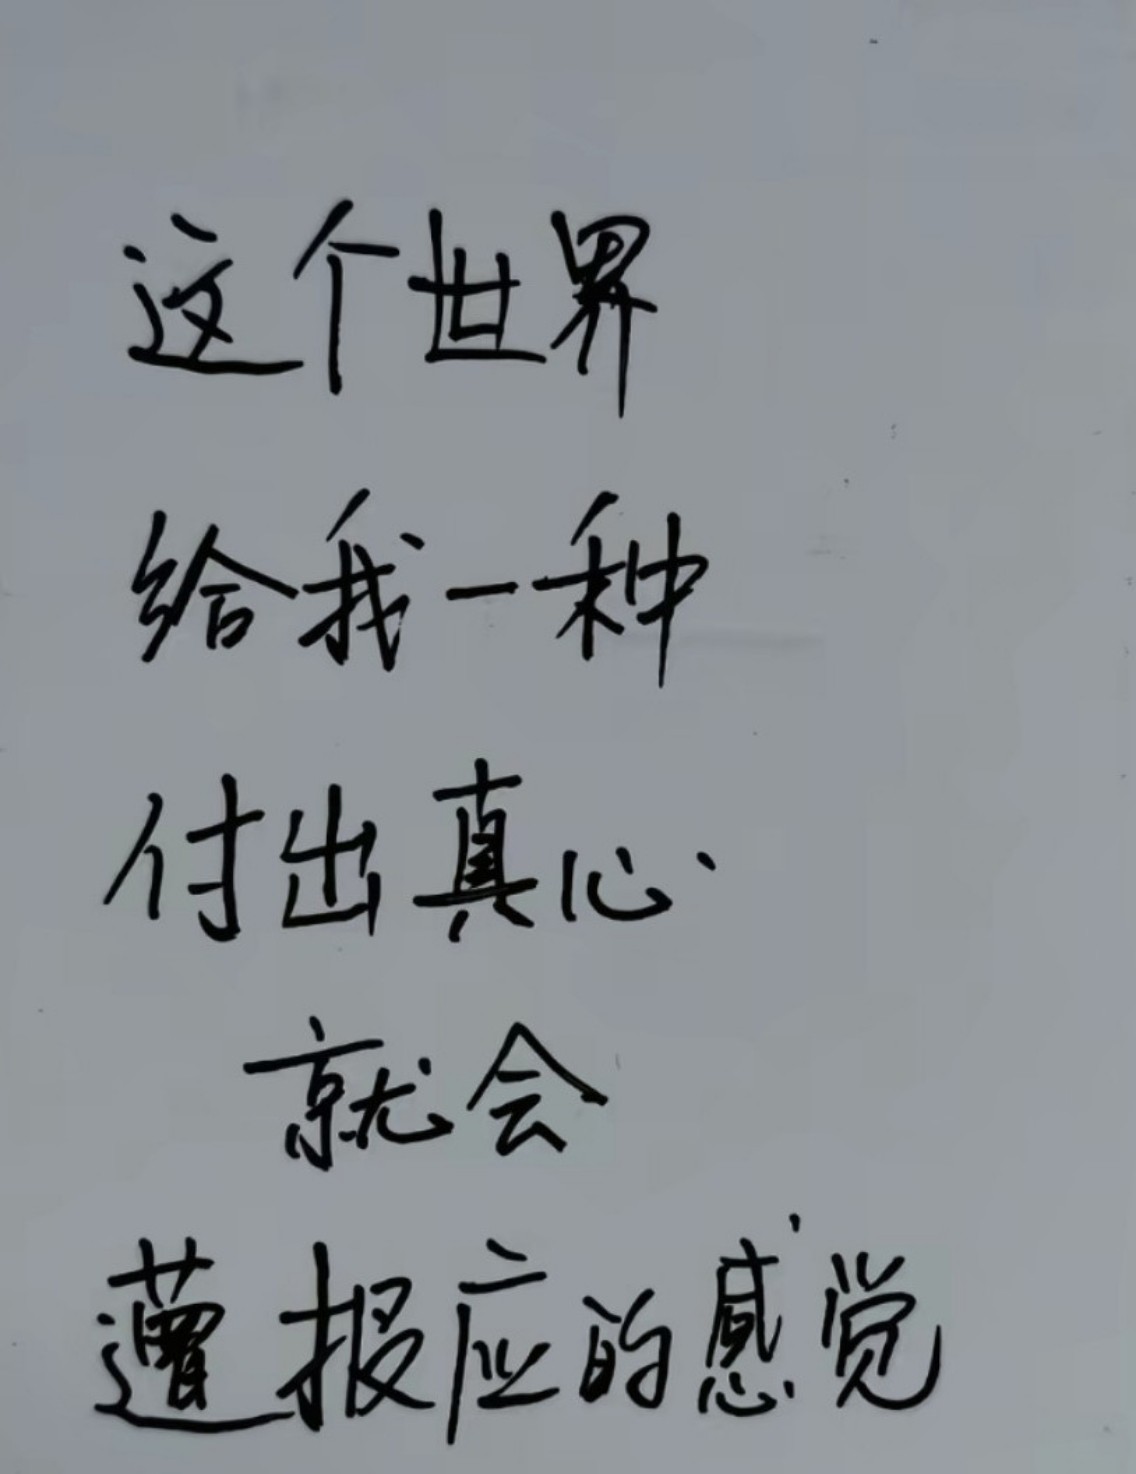 这个世界
给我一种
付出真心
就会
遭报应的感觉